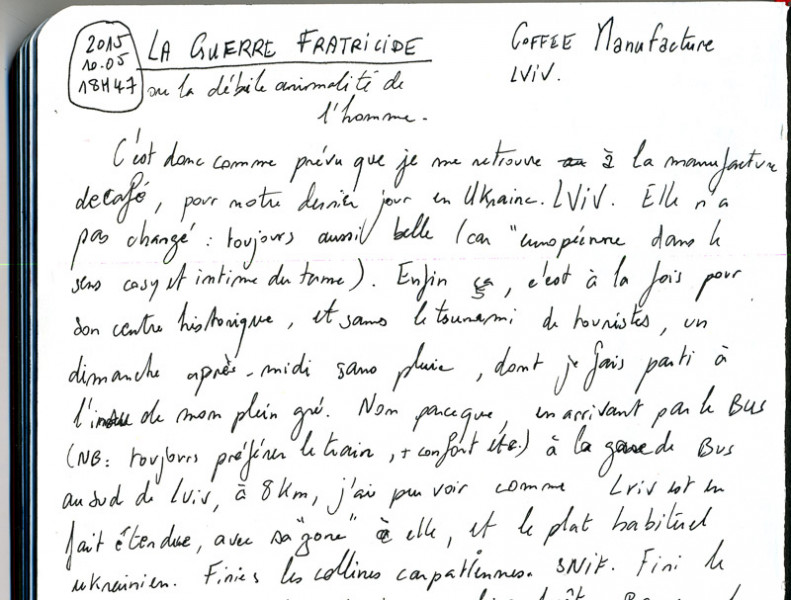 2015
10.05
18H47
LA GUERRE FRATRICIDE
COFFEE Manufacture
LViV.
ou la débile animalité de
l'homme.
C'est donc comme prévu que je me retrouve à la manufacture
de café, pour notre dernier jour en Ukraine. LViV. Elle n'a
pas changé : toujours aussi belle (car "européenne dans le
sens cosy et intime du terme). Enfin ça, c'est à la fois pour
son centre historique, et sans le tsunami de touristes, un
dimanche après-midi sans pluie, dont je fais parti à
l'insu de mon plein gré. Non parceque, en arrivant par le BUS
(NB: toujours préférer le train, + confort etc.) à la gare de Bus
au sud de Lviv, à 8 Km, j'ai pu voir comme Lviv est en
fait étendue, avec sa "zone" à elle, et le plat habituel
ukrainien. Finies les collines carpatiennes. SNIF. Fini le